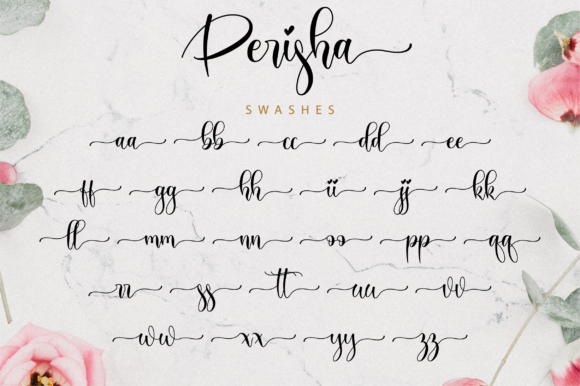 Perisha
SWASHES
aa bb cc dd ee
ff gg hh ii jj kk
ll mm nn oo pp qq
rr ss tt uu vv
ww xx yy zz